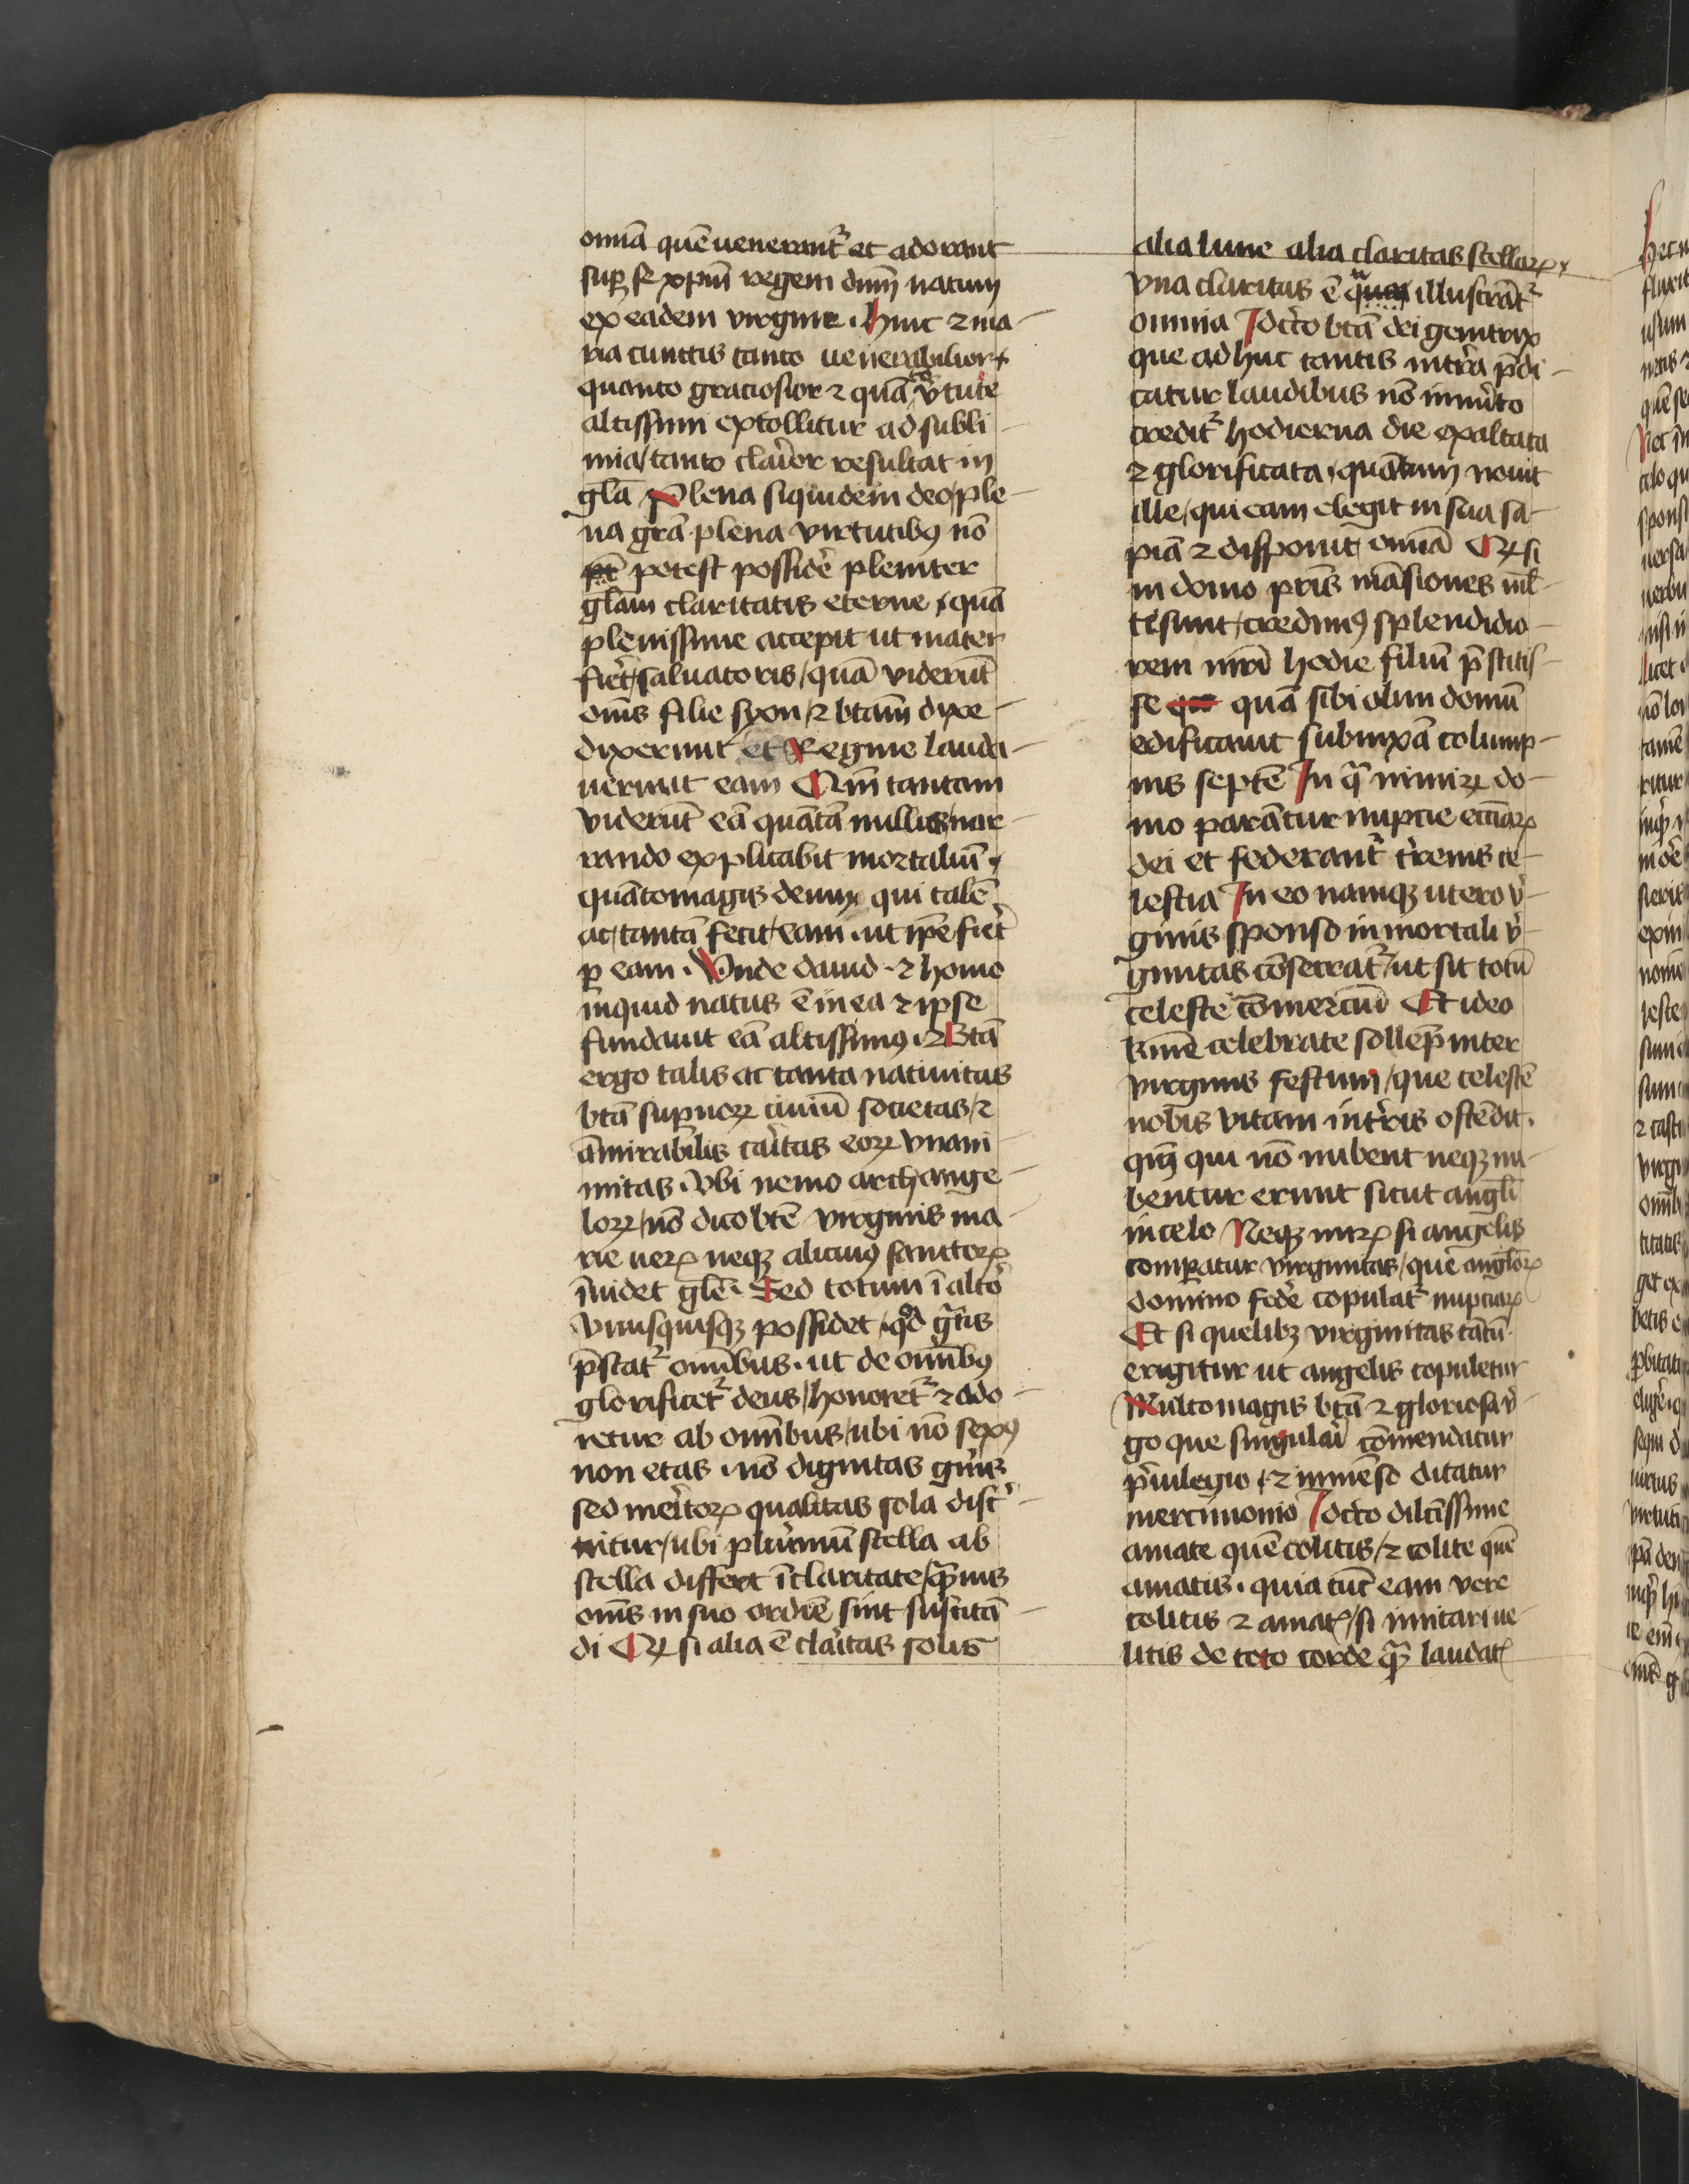 omīa quē uenerant᷑ et adorant
suꝑ se xp̄m regem dn̄m natum
ex eadem virgine. Hinc ⁊ ma-
ria cunctis tanto uenerabilior
quanto graciosior ⁊ quāto v̓tute
altissimi extollitur ad subli-
mia/ tanto clarior resultat in
glā Plena siquidem deo/ ple-
na grā. plena virtutibꝰ nō
potest possidē pleniter
glām claritatis eterne/ quā
plenissime accepit ut mater
fiet̓/ saluatoris/ quā viderūt
om̄s filie syon/ ⁊ btām dixe-
dixerunt et Regine lauda-
uerunt eam Qm̄ tantam
viderūt eā quātā nullus/ nar-
rando explicabit mortaliū/
quātomagis deum qui talē
ac/ tantā fecit/ eam. ut ip̄e fiet̓
ꝑ eam. Unde dauid. ⁊ homo
inquid natus ē in ea ⁊ ipse
fundauit eā altissimꝰ. Btā
ergo talis ac tanta natiuitas
btā suꝑnoꝝ ciuiū societas/ ⁊
āmirabilis caritas eoꝝ vnani-
mitas. Vbi nemo archange-
loꝝ/ nō dico btē virginis ma-
rie ueꝝ neqꝫ alicuiꝰ sanctoꝝ
īuidet glē. Sed totum ī alto᷑
vnusquisqꝫ possidet/ qd̓ gr̄tis
p̄stat᷑ omībus. ut de omībꝰ
glorificet᷑ deus/ honoret᷑ ⁊ ado-
retur ab omībus/ ubi nō sexꝰ
non etas. nō dignitas gn̄is
sed meritoꝝ qualitas sola disc̓-
nitur/ ubi plurimū stella ab
stella differt ī claritate/ quāuis
om̄s in suo ordīe sint suscitā-
di Qꝛ si alia ē claritas solis
alia lune alia claritas stellaꝝ
vna claritas ē qua illustrāt᷑
omnia Idcc̓o btā dei genitrix
que ad huc tantis intra p̄di-
catur laudibus nō inmerito
credit᷑ hodierna die exaltata
⁊ glorificata. quātum nouit
ille/ qui eam elegit in sua sa-
piā ⁊ disponit omīa Qꝛ si
in domo pr̄is māsiones ml̄-
te sunt/ credimꝰ splendidio-
rem mr̄i hodie filiū p̄stitis-
se quā sibi olim domū
edificauit subnixā colump-
nis septē In qͣ nimiꝝ do-
mo parātur nupcie ecciāꝝ
dei et federant᷑ t̓renis ce-
lestia In eo namqꝫ utero v̓-
ginis sponso inmortali v̓-
ginitas cōsecrat᷑/ ut sit totū
celeste cōmerciū Et ideo
kmē celebrate sollēp̄ mater
virginis festum/ que celestē
nobis vitam in t̓ris ostēdit.
qm̄ qui nō nubent neqꝫ nu-
bentur erunt sicut angl̄i
in celo Neqꝫ miꝝ si angelis
comꝑatur virginitas/ que angl̄oꝝ
domino fede᷑ copulat᷑ nupciaꝝ
Et si quelibꝫ virginitas tātū-
erigitur ut angelis copuletur
Multomagis btā ⁊ gloriosa v̓-
go que singulari cōmendatur
p̄uilegio/ ⁊ inmēso ditatur
mercimonio Idcc̓o dilc̄issime
amate quē colitis/ ⁊ colite quē
amatis. quia tūc eam vere
colitis ⁊ amatꝭ/ si imitari ue-
litis de toto corde qͣm laudatꝭ